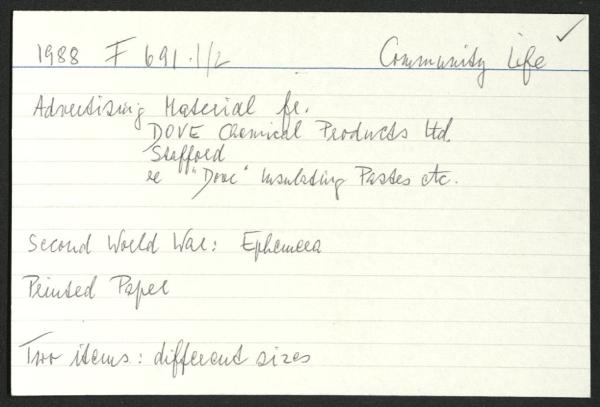 1988 F 691.1/2 Community Life ✓
Advertising Material fr.
DOVE Chemical Products Ltd.
Stafford
re "Dove" Insulating Pastes etc.
Second World War: Ephemera
Printed Paper
Two items: different sizes